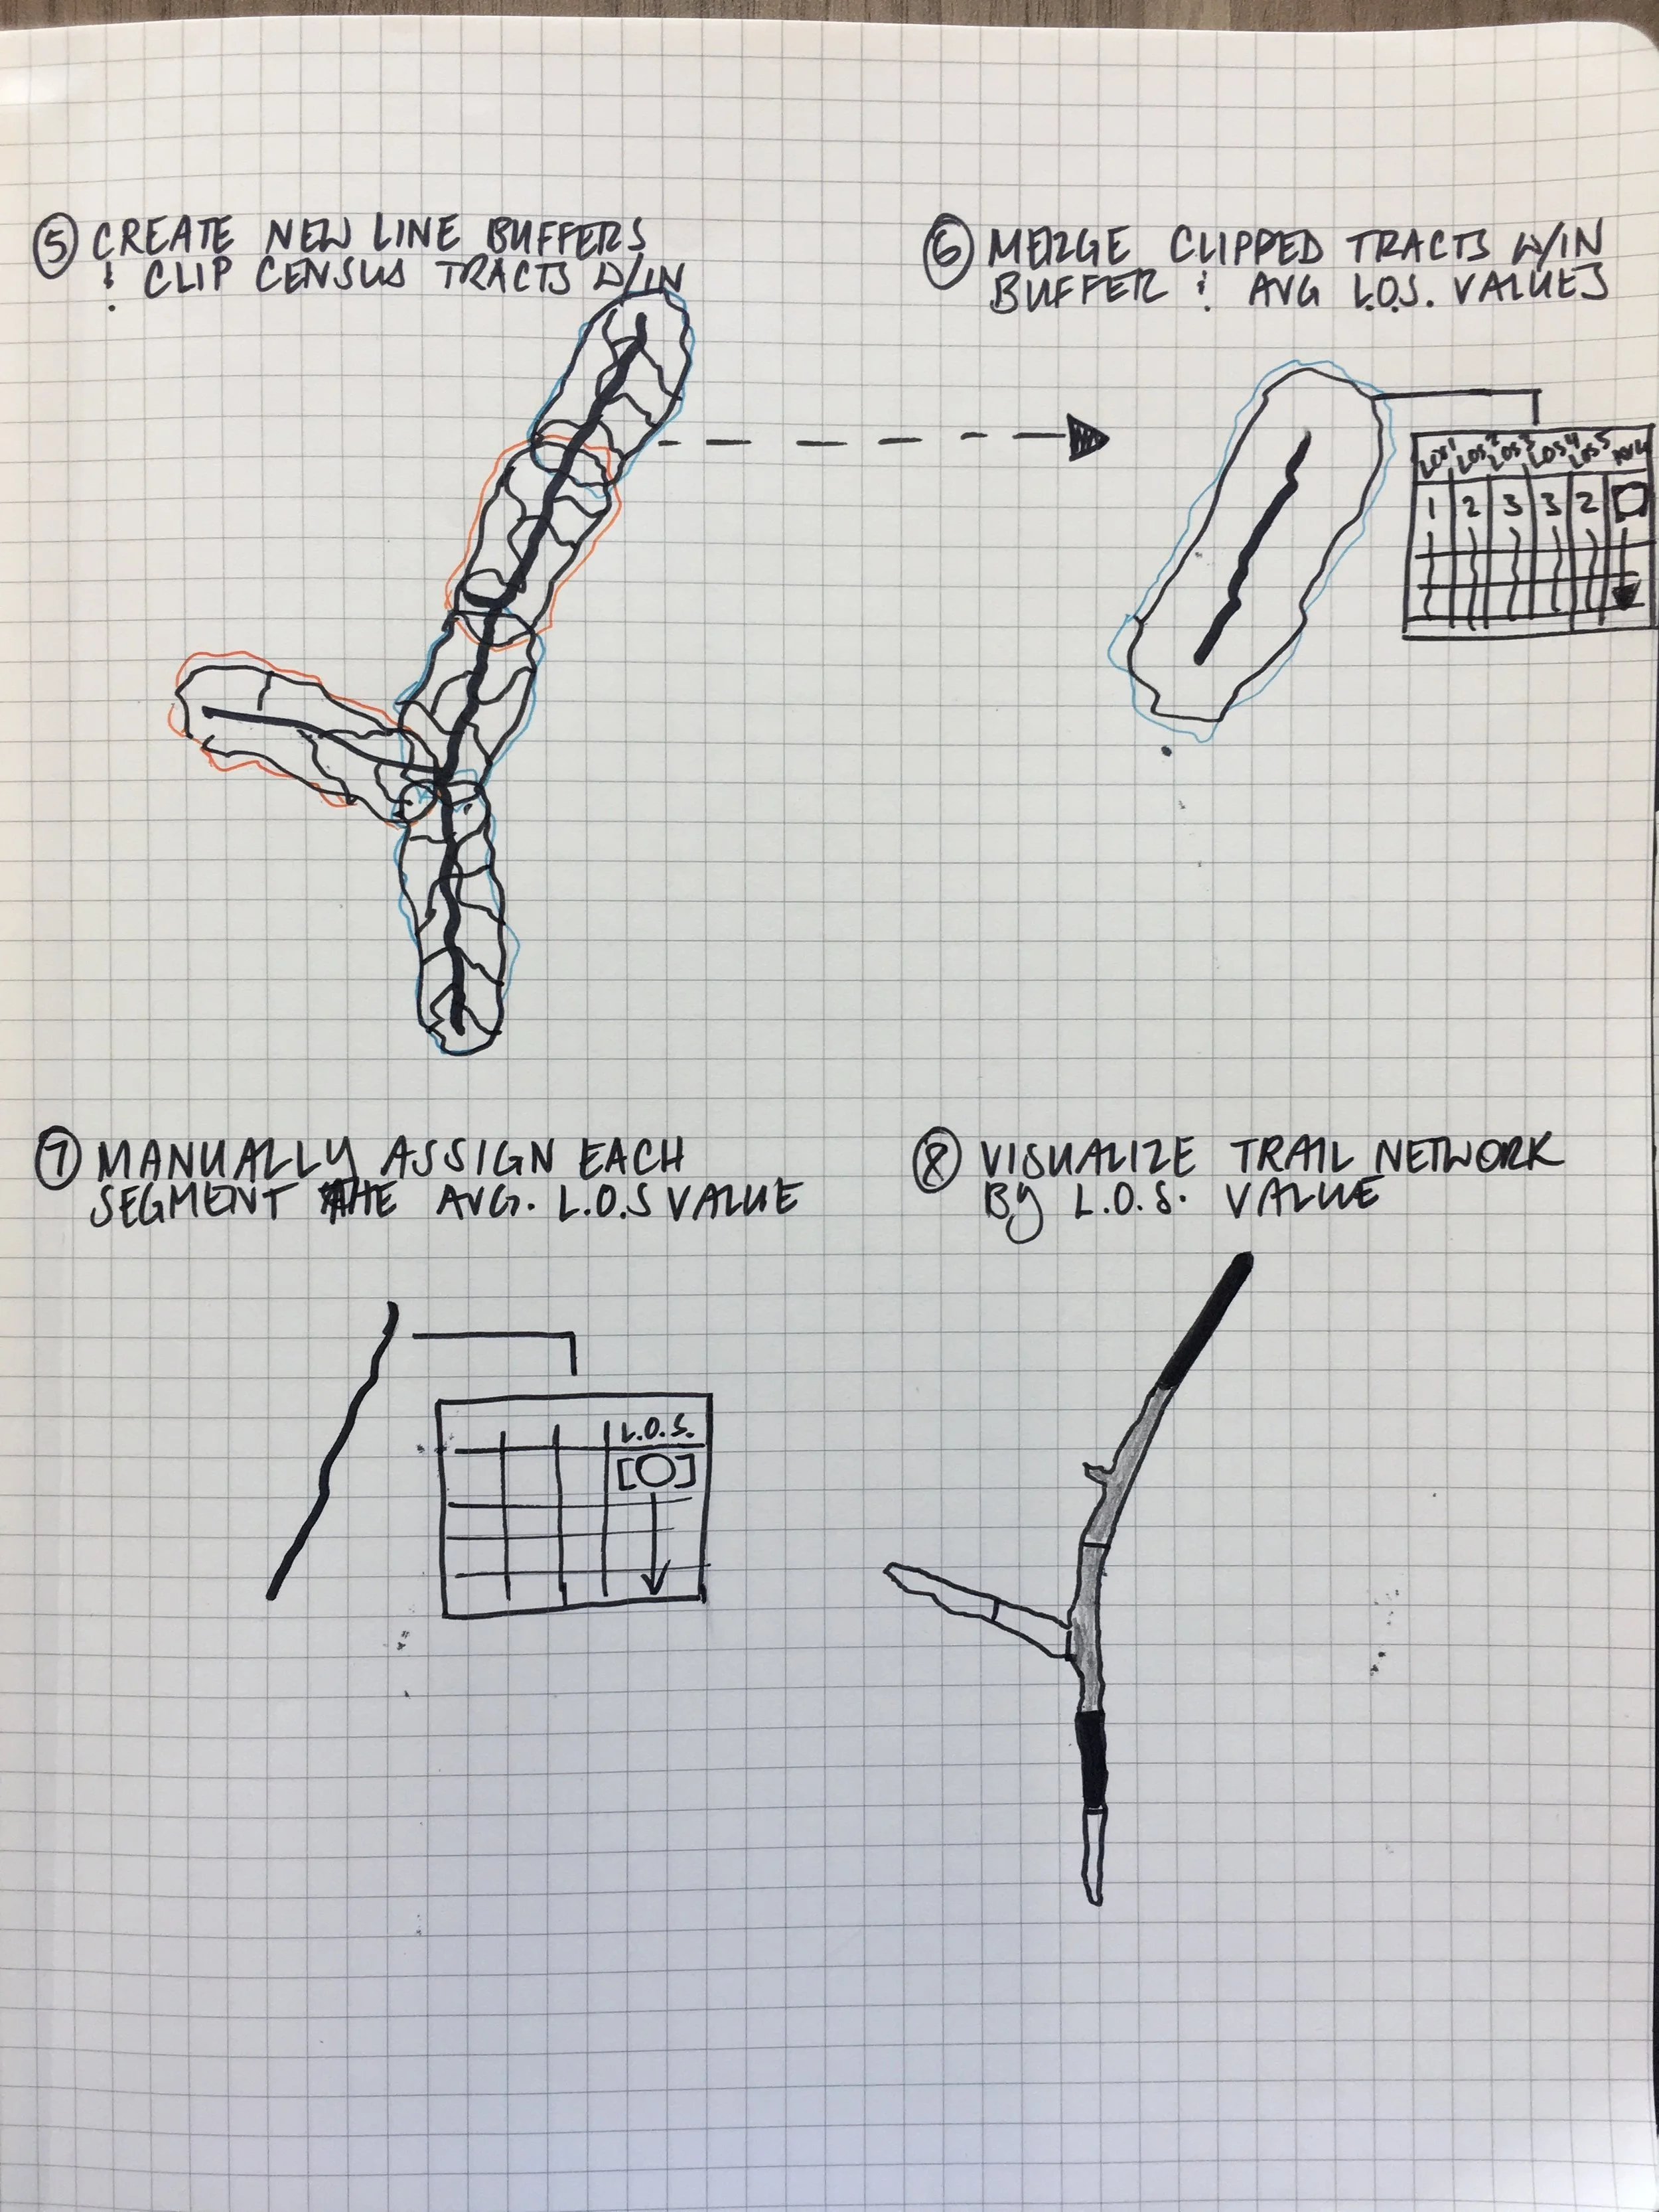 ⑤ CREATE NEW LINE BUFFERS
& CLIP CENSUS TRACTS W/IN
⑥ MERGE CLIPPED TRACTS W/IN
BUFFER & AVG L.O.S. VALUES
LOS1 LOS2 LOS3 LOS4 LOS5 AVG
1 2 3 3 2
⑦ MANUALLY ASSIGN EACH
SEGMENT THE AVG. L.O.S VALUE
L.O.S.
⑧ VISUALIZE TRAIL NETWORK
BY L.O.S. VALUE